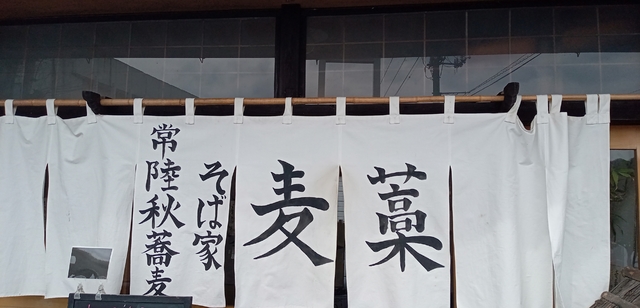 藁麦
そば家
常陸秋蕎麦